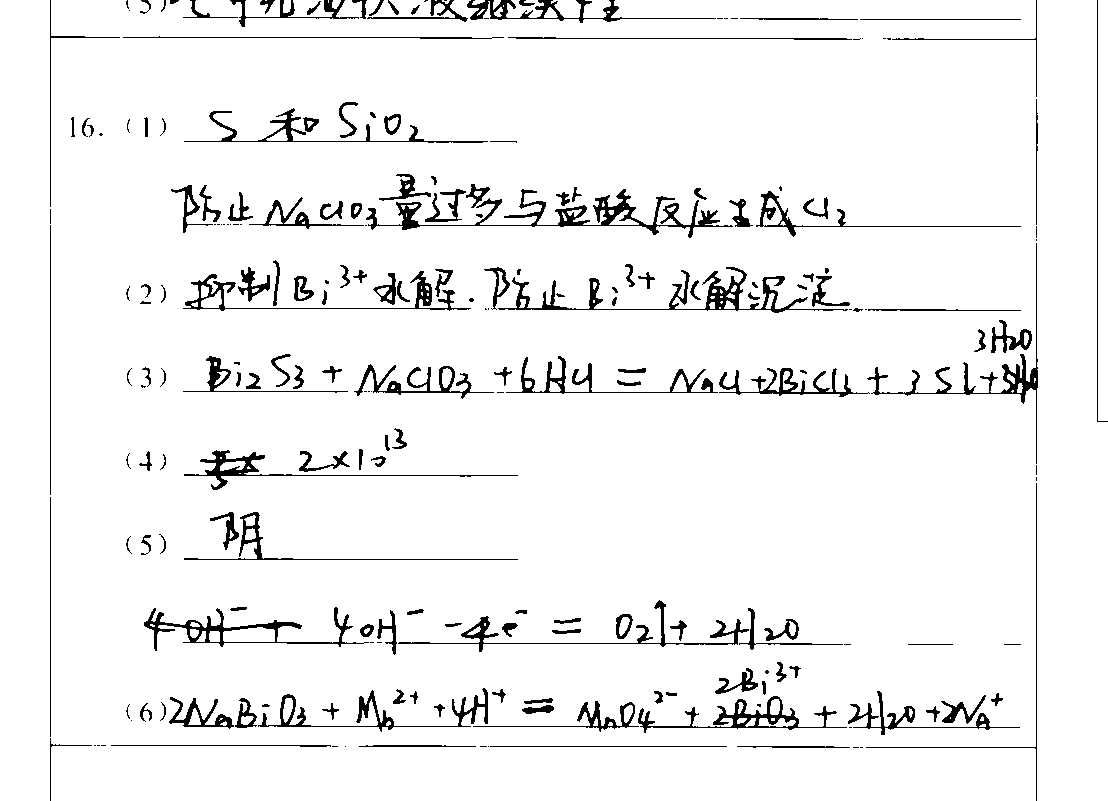 16.（1）S 和 SiO₂
防止 NaClO₃ 量过多与盐酸反应生成 Cl₂
（2）抑制 Bi³⁺ 水解. 防止 Bi³⁺ 水解沉淀
（3）Bi₂S₃ + NaClO₃ + 6HCl = NaCl + 2BiCl₃ + 3S↓ + 3H₂O
（4）2×10¹³
（5）阴
4OH⁻ + 4OH⁻ - 4e⁻ = O₂↑ + 2H₂O
（6）2NaBiO₃ + Mn²⁺ + 4H⁺ = MnO₄²⁻ + 2Bi³⁺ + 2H₂O + 2Na⁺